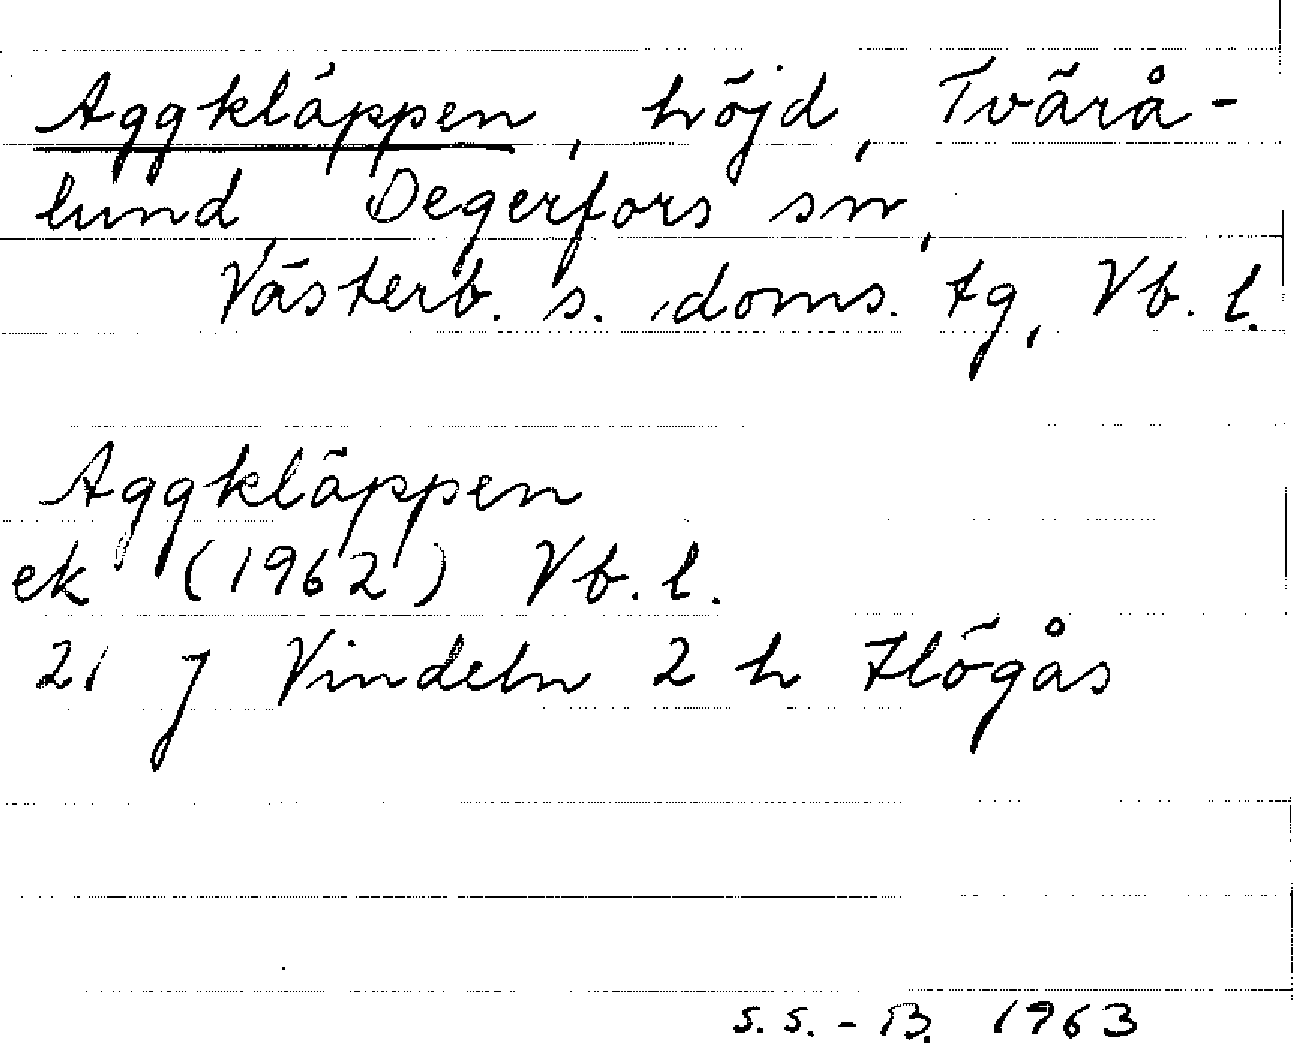 Aggkläppen, höjd, Tvärå-
lund Degerfors sn,
Västerb. s. doms. tg, Vb. l.
Aggkläppen
ek (1962) Vb. l.
21 J Vindeln 2 h Högås
S. S. - B. 1963